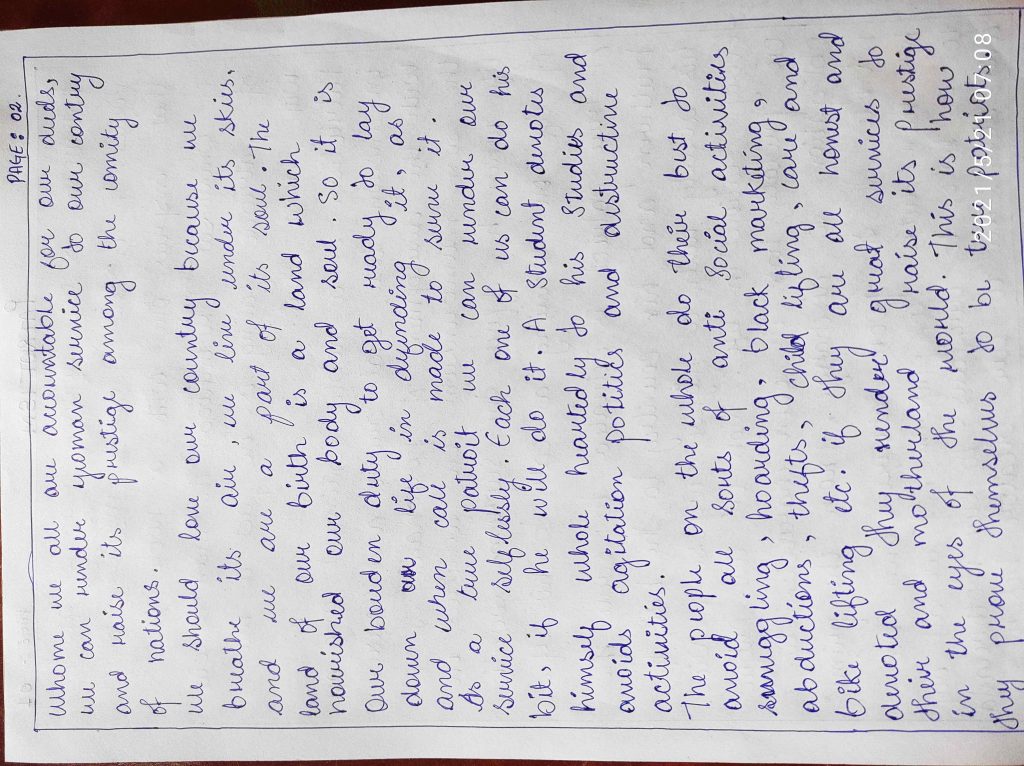 PAGE: 02.
whome we all are accountable for our deeds,
we can render yoman service to our contry
and raise its prestige among the comity
of nations.
we should love our country because we
breathe its air, we live under its skies,
and we are a part of its soul. The
land of our birth is a land which
nourished our body and soul. So it is
our bounden duty to get ready to lay
down our life in defending it, as
and when call is made to serve it.
As a true patroit we can render our
service selflessly. Each one of us can do his
bit, if he will do it. A Student devotes
himself whole heartedly to his Studies and
avoids agitation politics and distructine
activities.
The people on the whole do their best to
avoid all sorts of anti Social activities
smuggling, hoarding, black marketing,
abductions, thefts, child lifting, care and
bike lifting etc. if they are all honest and
devoted they render great services to
their and motherland raise its prestige
in the eyes of the world. This is how
they prove themselves to be true patriots.
2021/5/29 07:08